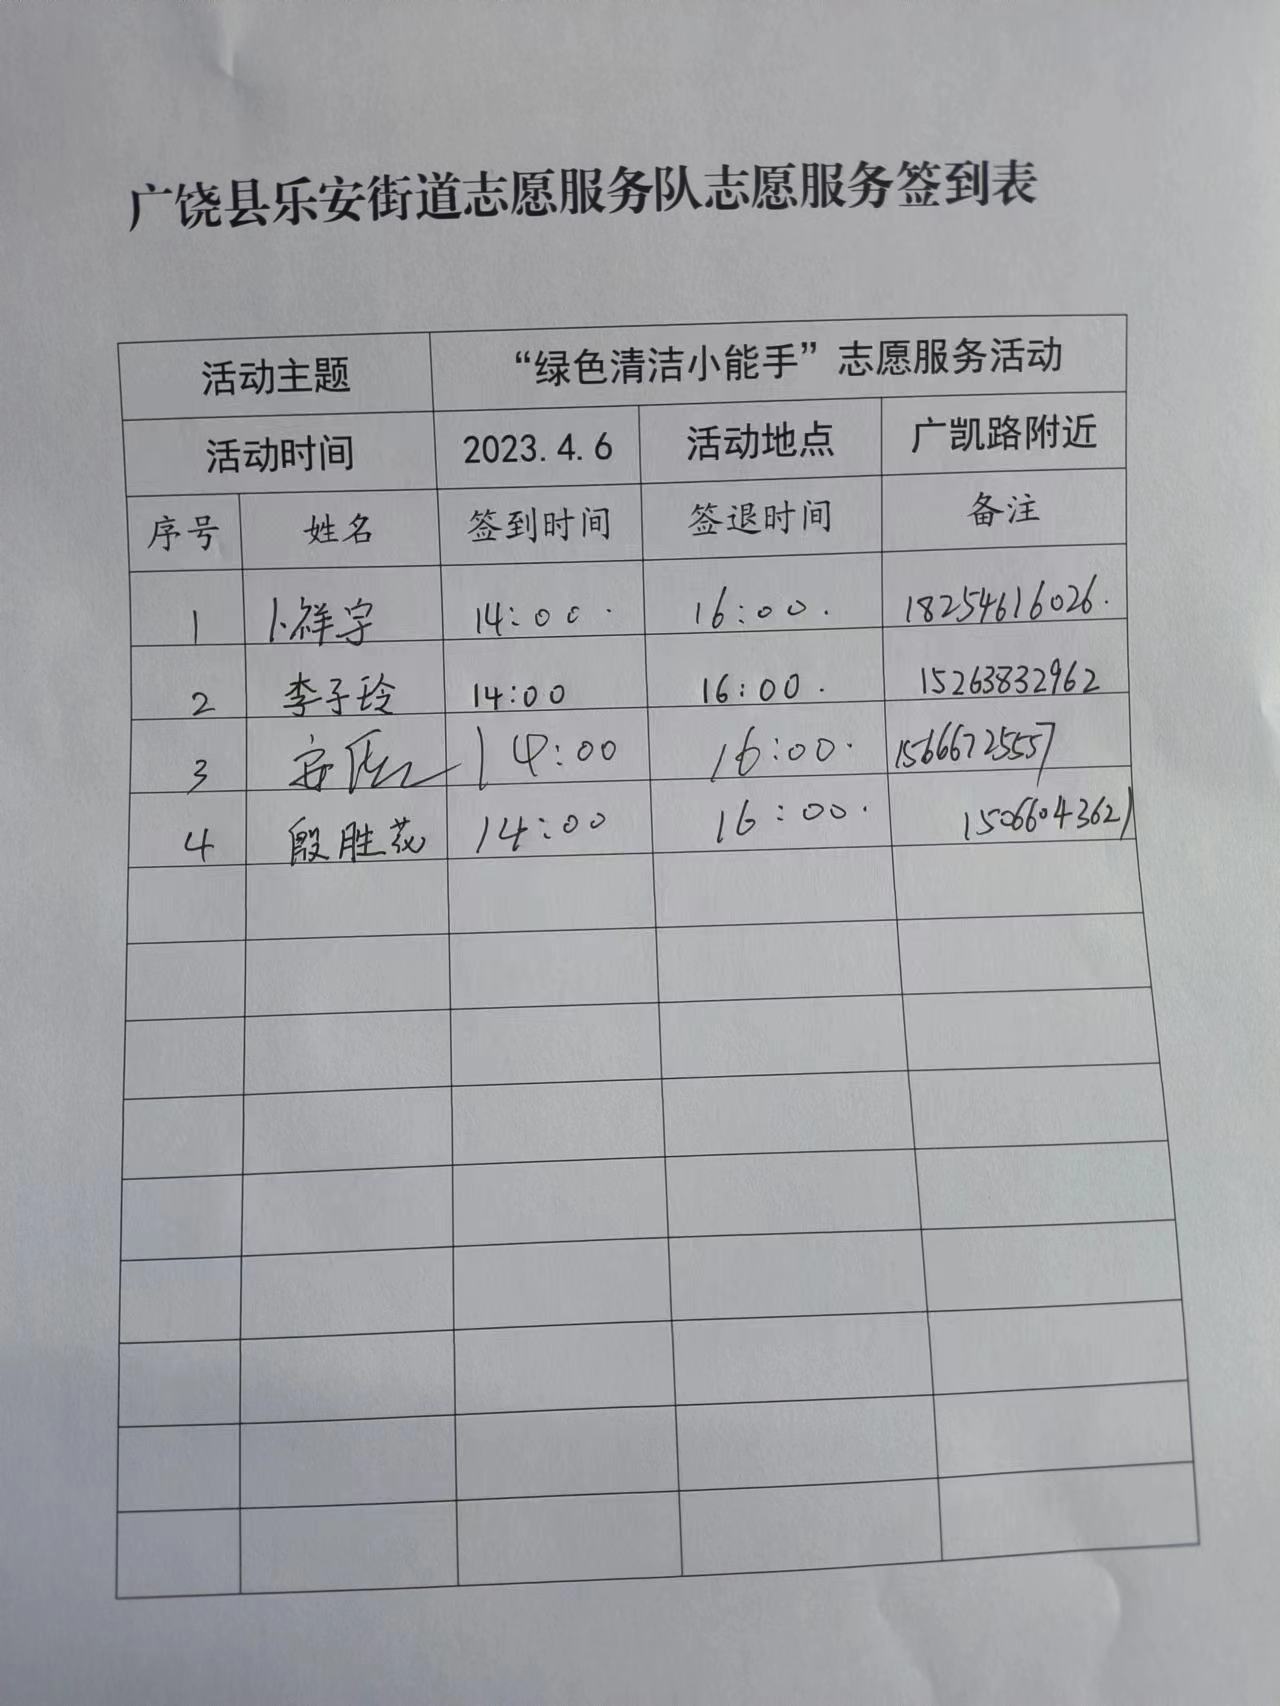 广饶县乐安街道志愿服务队志愿服务签到表
活动主题 “绿色清洁小能手”志愿服务活动
活动时间 2023.4.6 活动地点 广凯路附近
序号 姓名 签到时间 签退时间 备注
1 卜祥宇 14:00. 16:00. 18254616026.
2 李子玲 14:00 16:00. 15263832962
3 安 14:00 16:00. 15666725557
4 殷胜花 14:00 16:00. 15066043621